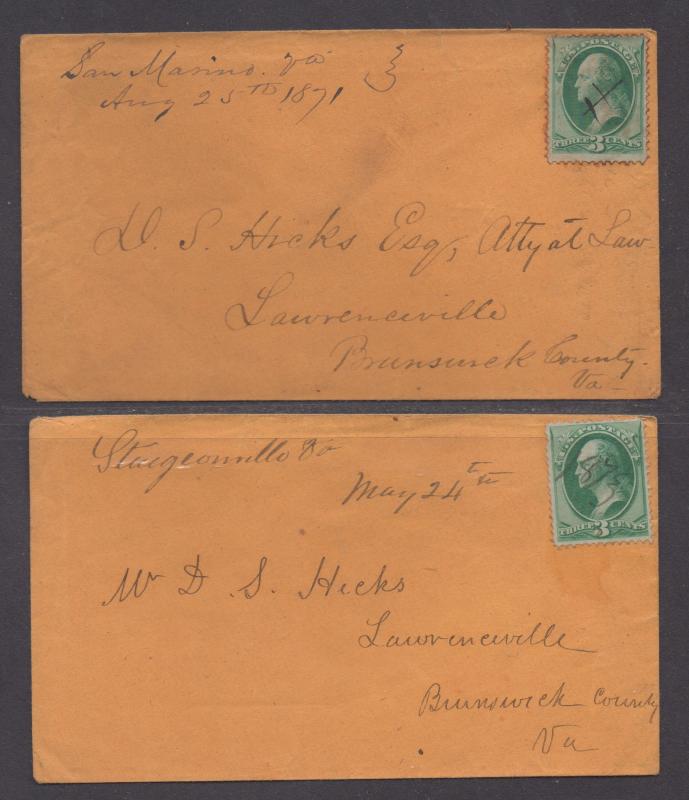 San Marino. Va
Aug 25TH 1871
U.S. POSTAGE
THREE 3 CENTS
D. S. Hicks Esq, Atty at Law
Lawrenceville
Brunswick County.
Va
Sturgeonville Va
May 24th
U.S. POSTAGE
1873
THREE 3 CENTS
Mr D. S. Hicks
Lawrenceville
Brunswick County
Va